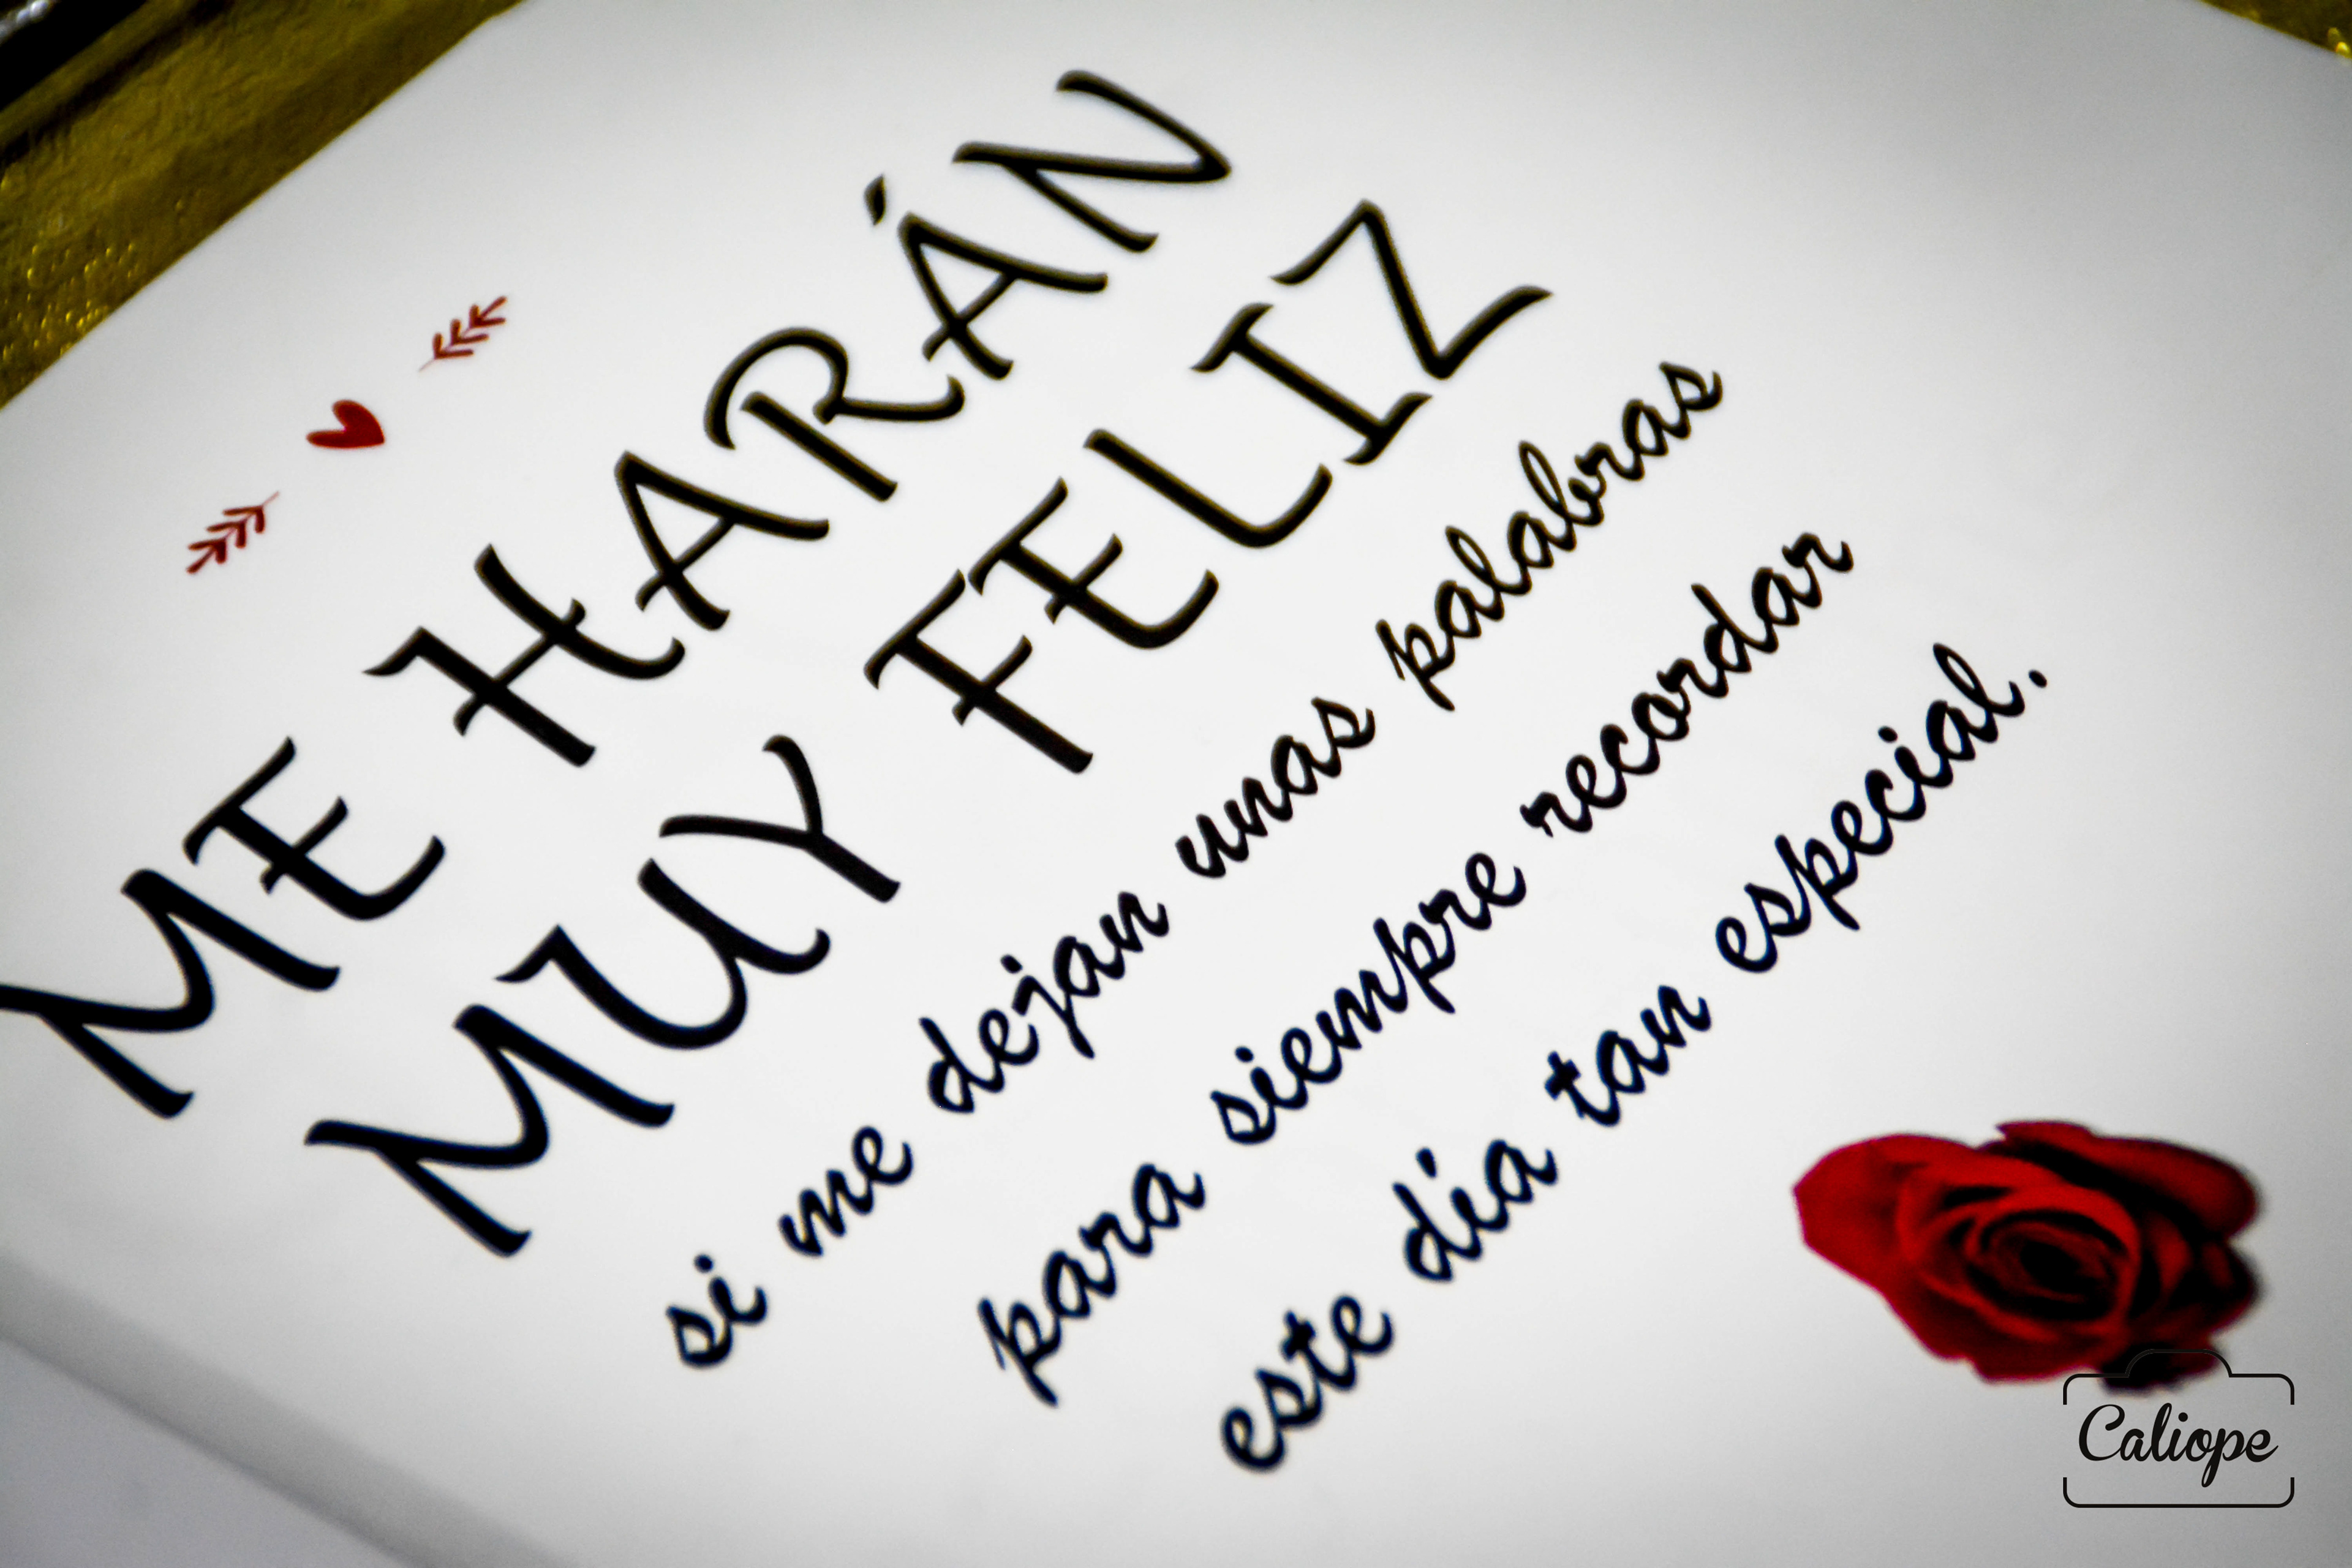 ME HARÁN
MUY FELIZ
si me dejan unas palabras
para siempre recordar
este día tan especial.
Caliope